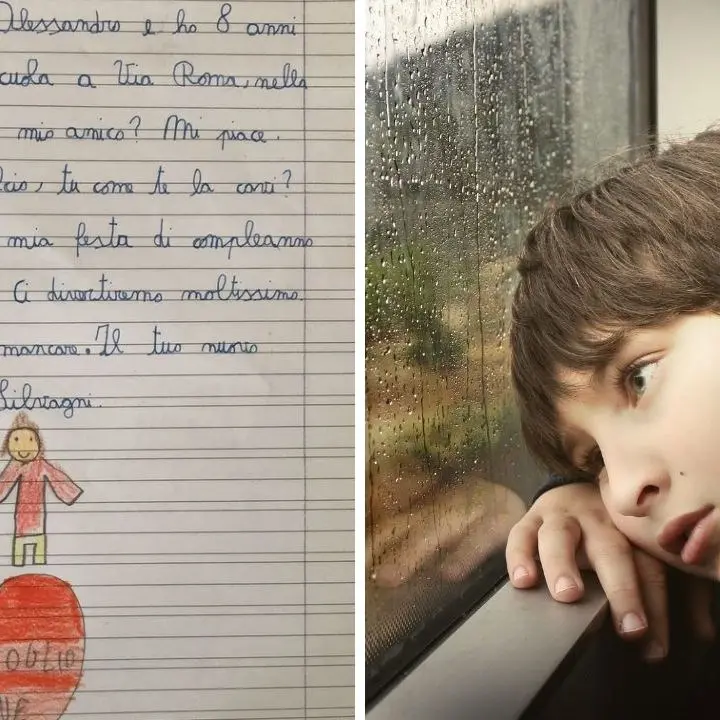 Alessandro e ho 8 anni
cuola a Via Roma, nella
mio amico? Mi piace.
lcio, tu come te la cavi?
mia festa di compleanno
Ci divertiremo moltissimo.
mancare. Il tuo nuovo
Silvagni.
OGLIO
NE